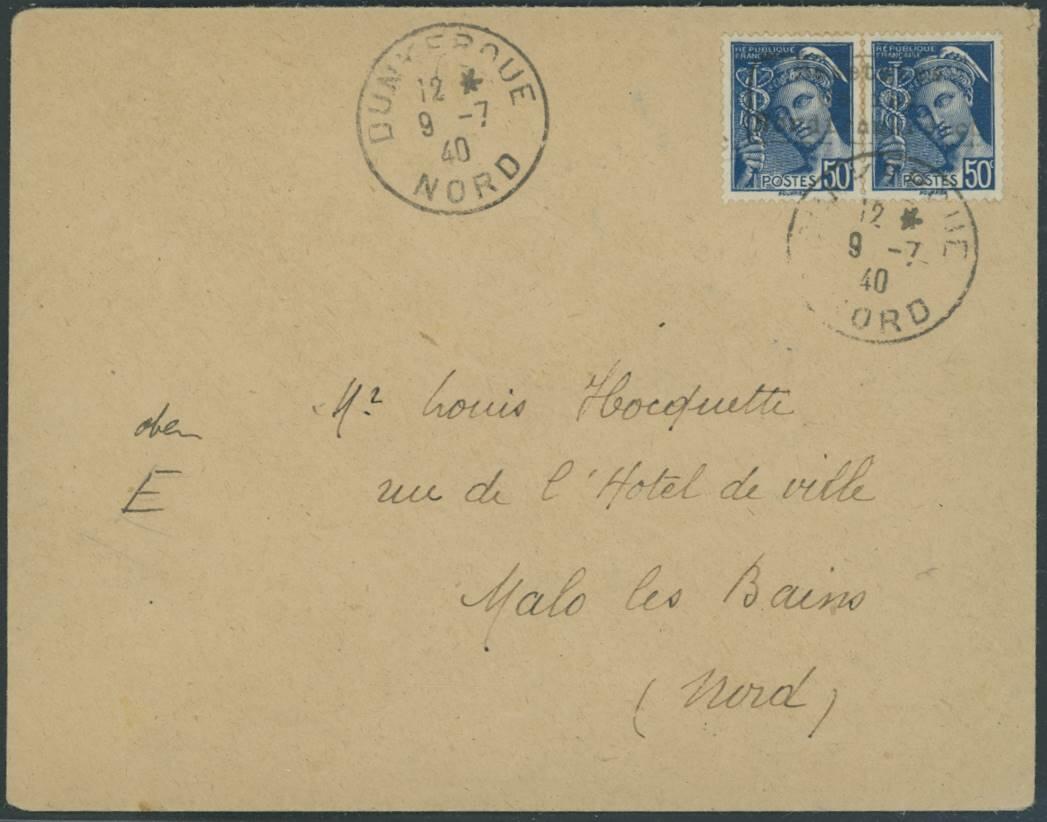 DUNKERQUE
12 *
9 -7
40
NORD
RÉPUBLIQUE
FRANÇAISE
POSTES 50c
RÉPUBLIQUE
FRANÇAISE
POSTES 50c
12 *
9 -7
40
ORD
Mr Louis Hocquette
rue de l'Hotel de ville
Malo les Bains
(Nord)
oben
E